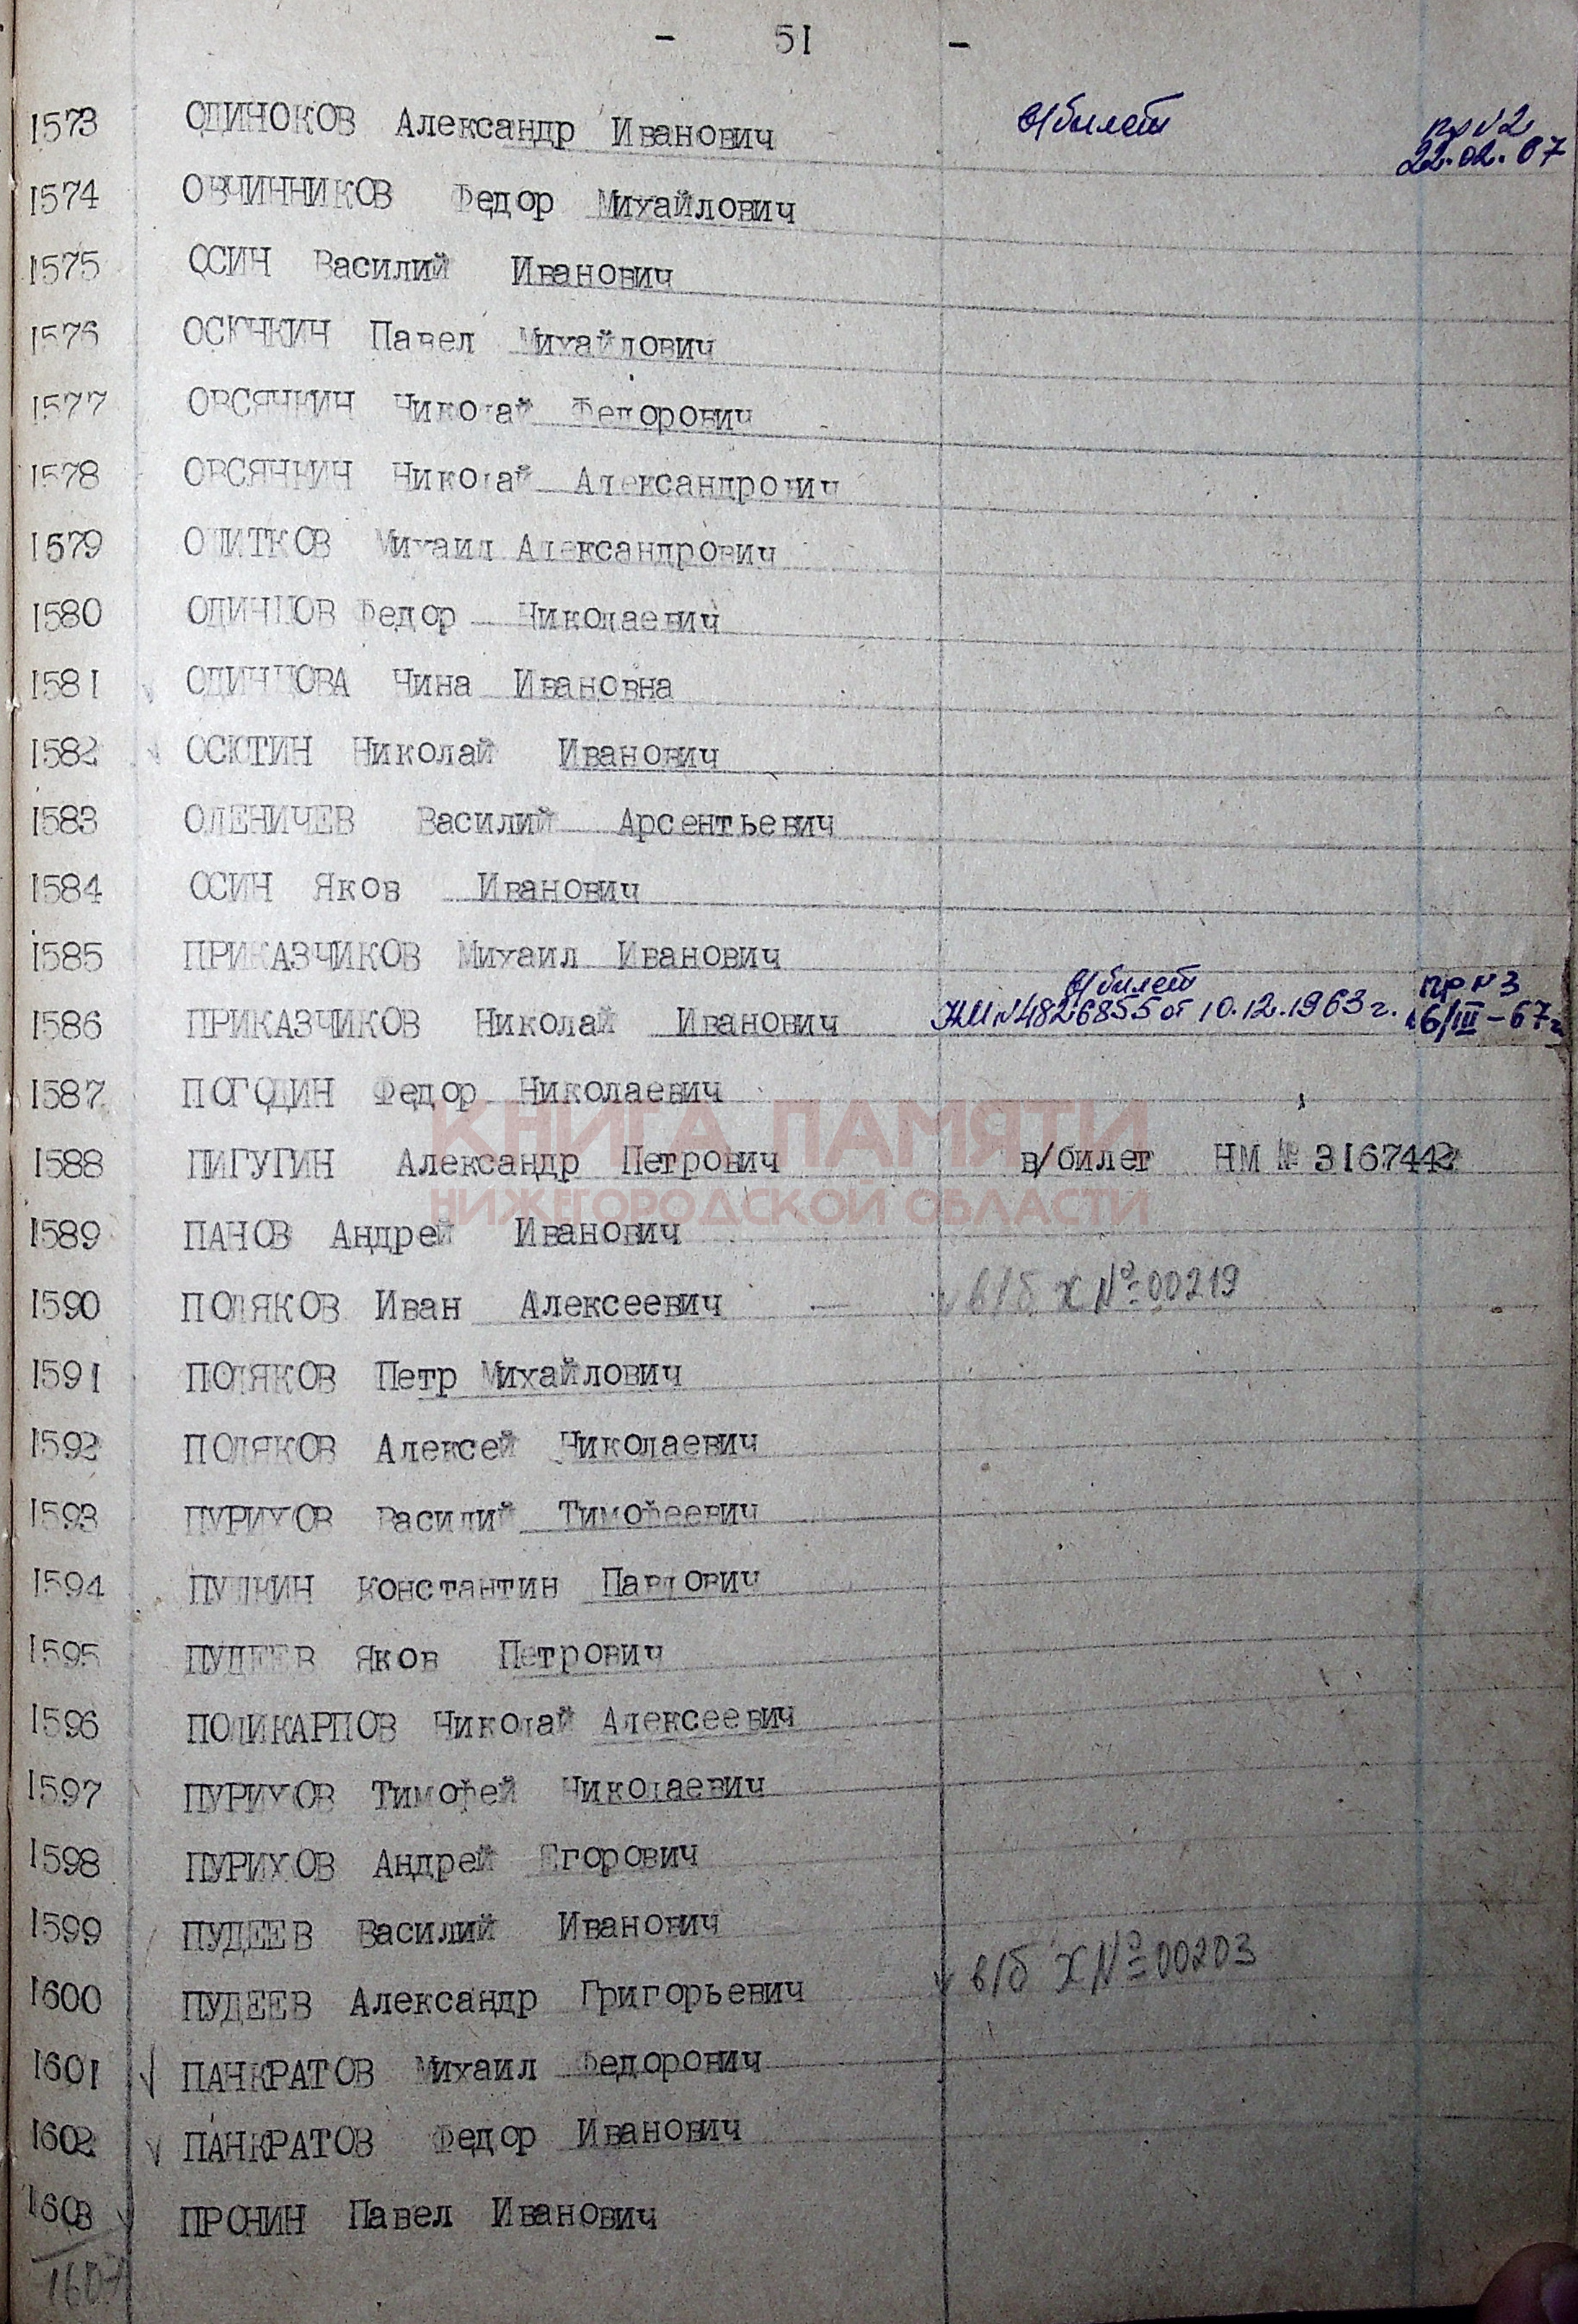 - 51 -
1573 ОДИНОКОВ Александр Иванович в/билет пр №2
22.02.67
1574 ОВЧИННИКОВ Федор Михайлович
1575 ОСИН Василий Иванович
1576 ОСЮНКИН Павел Михайлович
1577 ОВСЯНКИН Николай Федорович
1578 ОВСЯНКИН Николай Александрович
1579 Михаил Александрович
1580 ОДИНЦОВ Федор Николаевич
1581 ОДИНЦОВА Нина Ивановна
1582 ОСЮТИН Николай Иванович
1583 ОЛЕНИЧЕВ Василий Арсентьевич
1584 ОСИН Яков Иванович
1585 ПРИКАЗЧИКОВ Михаил Иванович
в/билет пр №3
1586 ПРИКАЗЧИКОВ Николай Иванович НМ №4826855 от 10.12.1963 г. 16/III-67г
1587 ПОГОДИН Федор Николаевич
1588 ПИГУГИН Александр Петрович в/билет НМ № 3167442
КНИГА ПАМЯТИ
НИЖЕГОРОДСКОЙ ОБЛАСТИ
1589 ПАНОВ Андрей Иванович
1590 ПОЛЯКОВ Иван Алексеевич в/б х №00219
1591 ПОЛЯКОВ Петр Михайлович
1592 ПОЛЯКОВ Алексей Николаевич
1593 ПУРИХОВ Василий Тимофеевич
1594 ПУДКИН Константин Павлович
1595 ПУДЕЕВ Яков Петрович
1596 ПОЛИКАРПОВ Николай Алексеевич
1597 ПУРИХОВ Тимофей Николаевич
1598 ПУРИХОВ Андрей Егорович
1599 ПУДЕЕВ Василий Иванович
1600 ПУДЕЕВ Александр Григорьевич в/б х №00203
1601 ПАНКРАТОВ Михаил Федорович
1602 ПАНКРАТОВ Федор Иванович
1603 ПРОНИН Павел Иванович